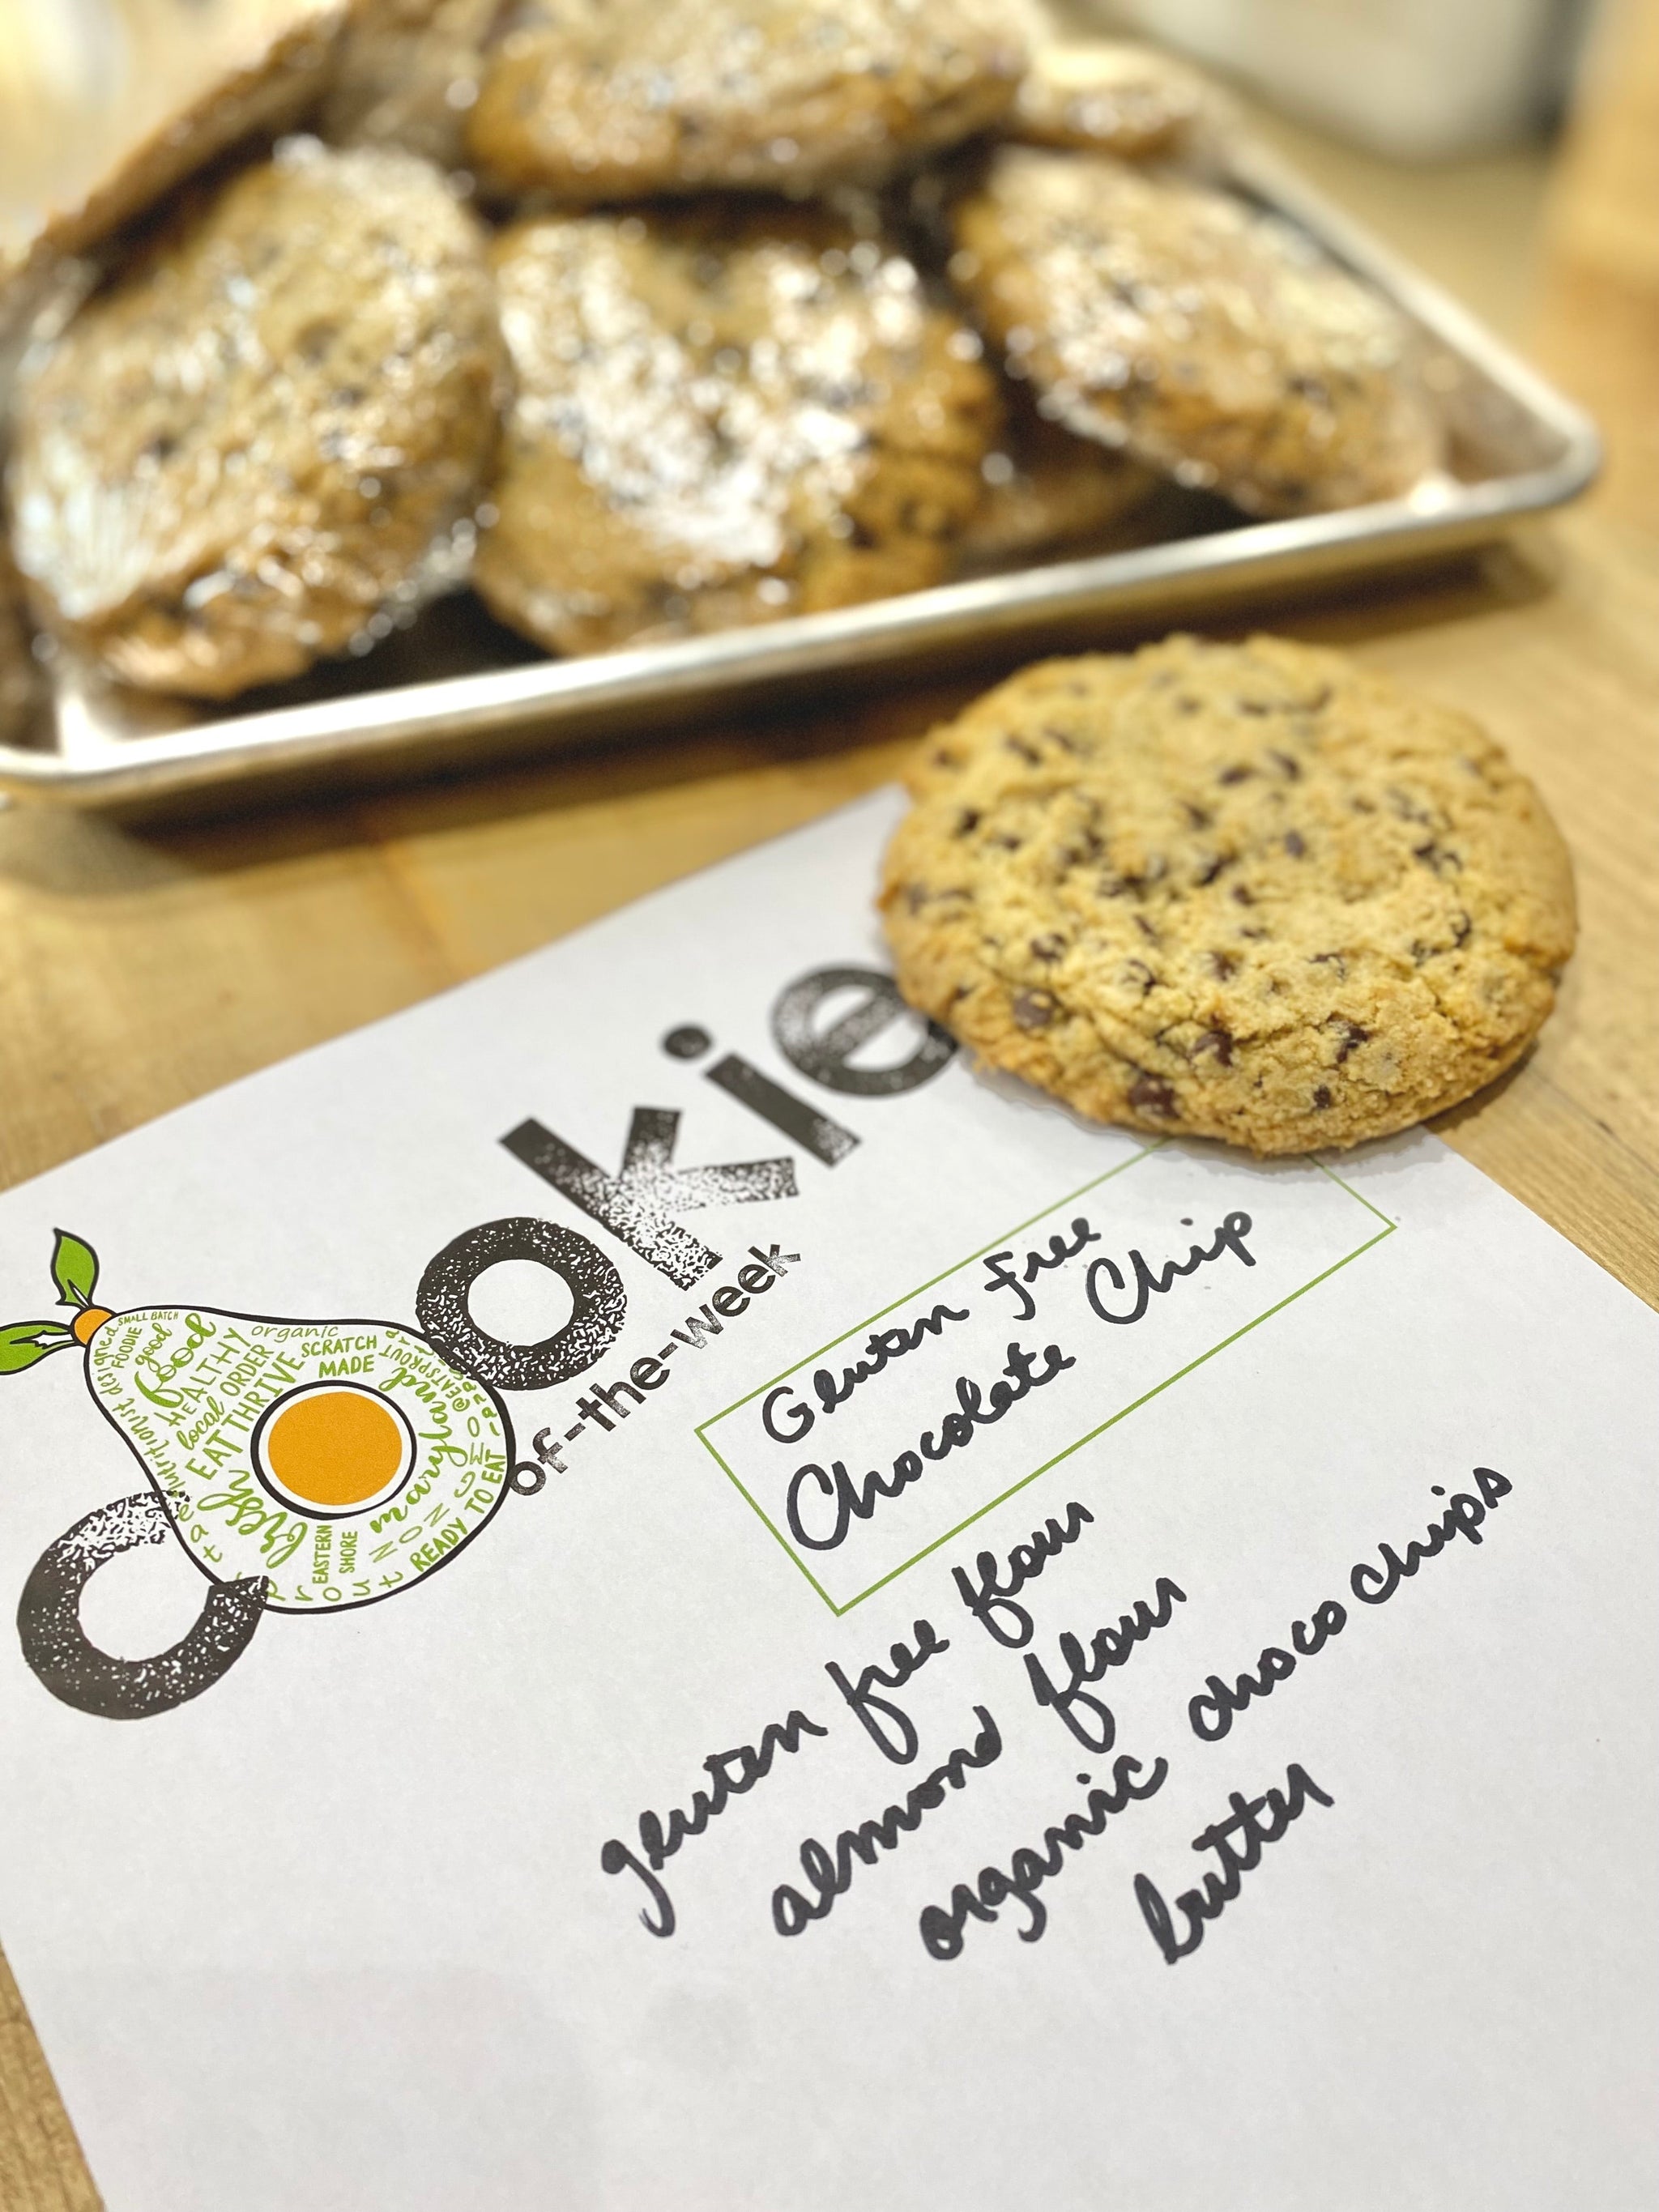 cookie
of-the-week
SMALL BATCH
FOODIE
good
food
HEALTHY
local ORDER
EAT THRIVE
fresh
organic
SCRATCH
MADE
maryland
EASTERN
SHORE
NON GMO
READY TO EAT
nutritionist designed
@EATSPROUT
Gluten Free
Chocolate Chip
gluten free flour
almond flour
organic choco chips
butter